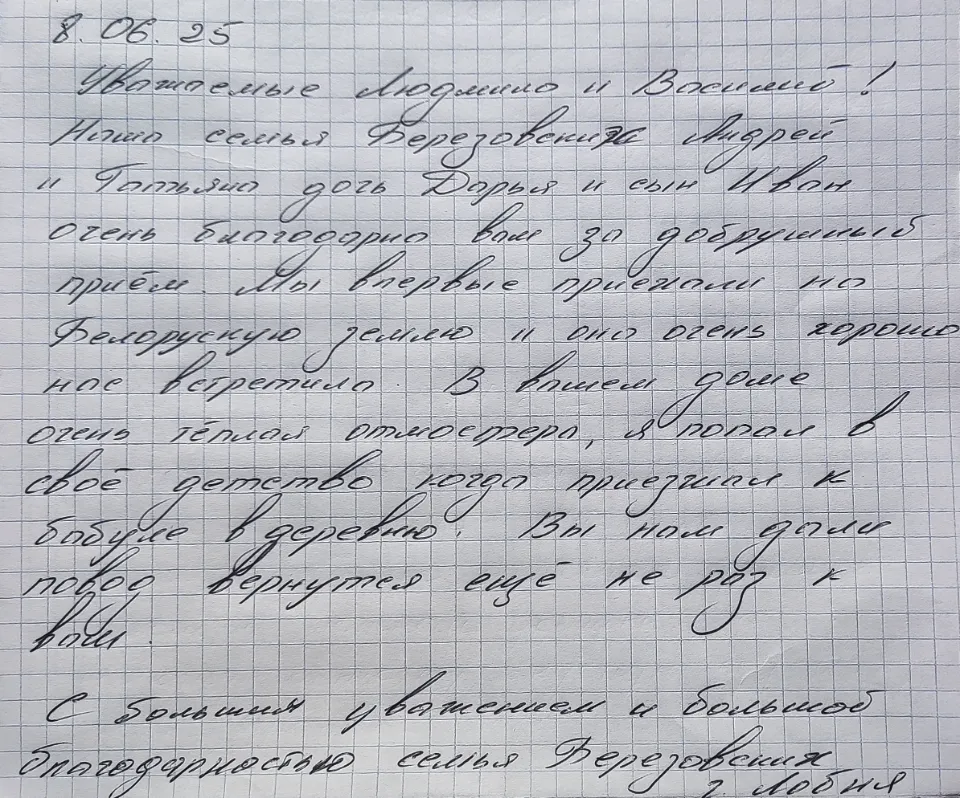 8.06.25
Уважаемые Людмила и Василий!
Наша семья Березовских Андрей
и Татьяна дочь Дарья и сын Иван
очень благодарна вам за добрушный
приём. Мы впервые приехали на
Белорускую землю и она очень хорошо
нас встретила. В вашем доме
очень тёплая атмосфера, я попал в
своё детство когда приезжал к
бабуле в деревню. Вы нам дали
повод вернутся ещё не раз к
вам.
С большим уважением и большой
благодарностью семья Березовских
г. Лобня